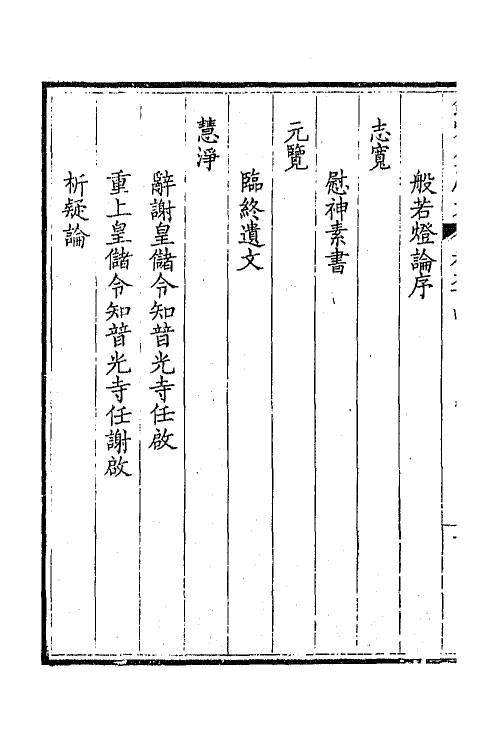 般若燈論序
志寬
慰神素書
元覽
臨終遺文
慧淨
辭謝皇儲令知普光寺任啟
重上皇儲令知普光寺任謝啟
析疑論